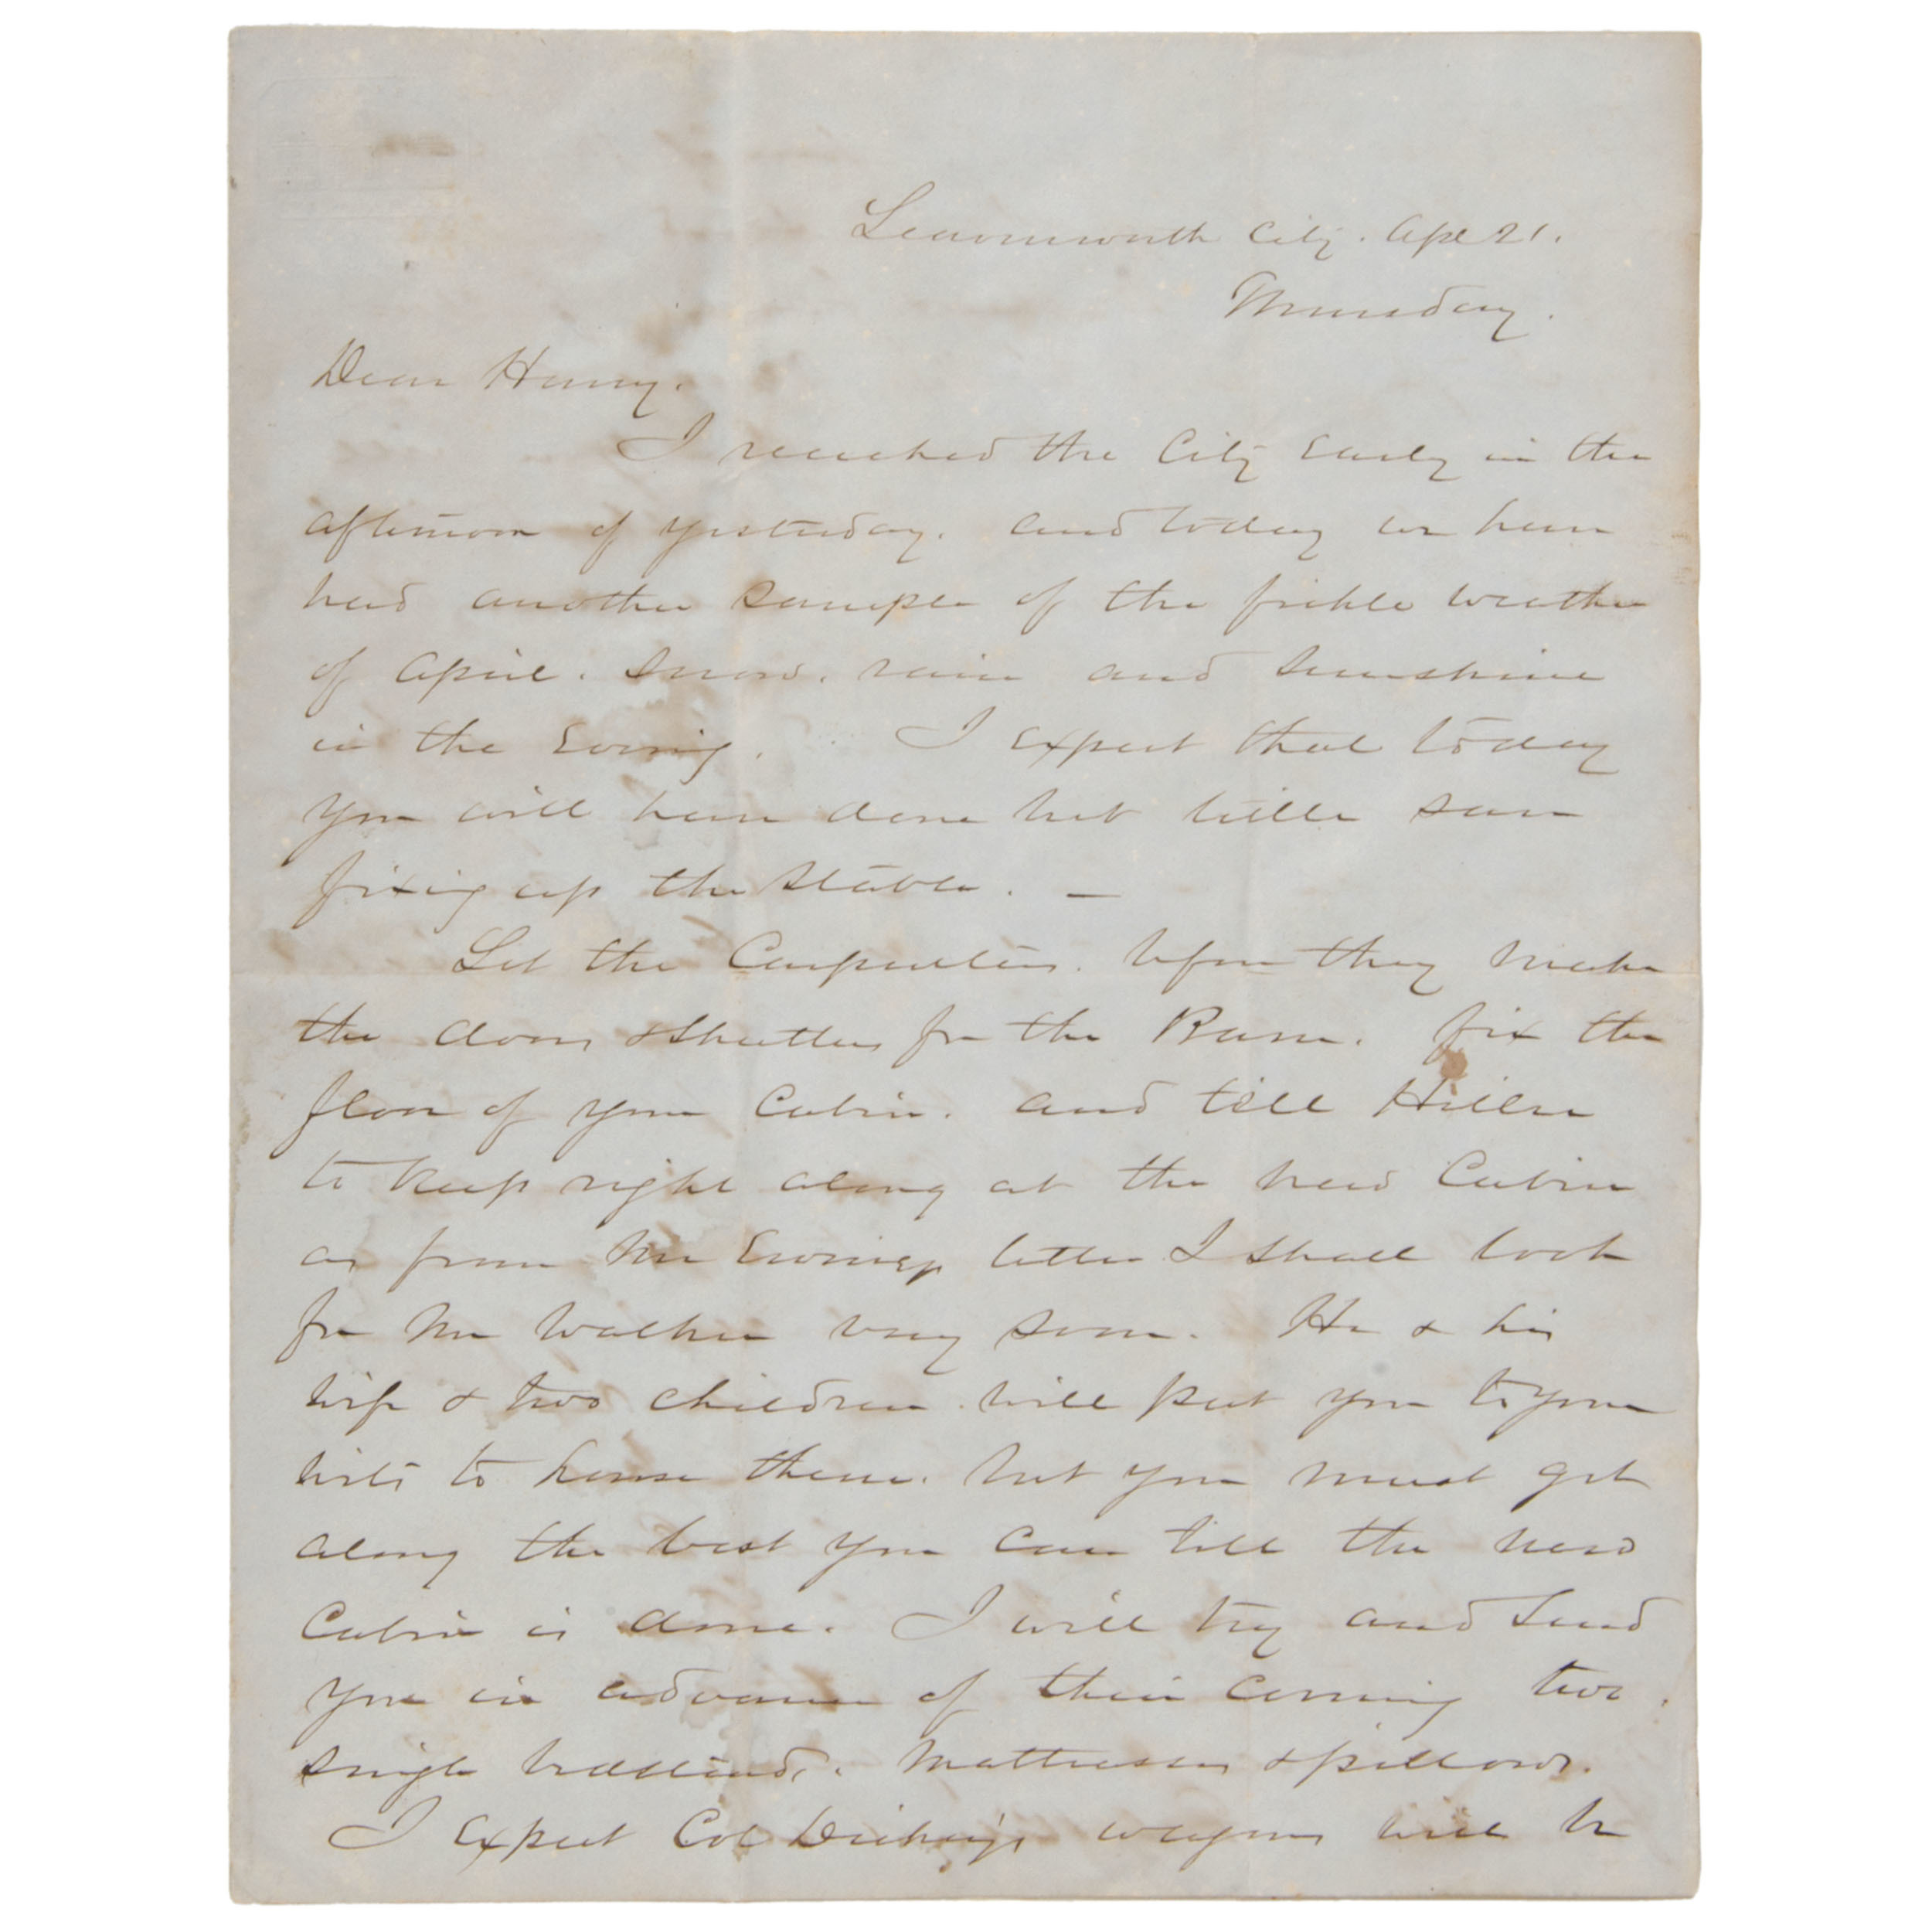 Leavenworth City. Apl 21.
Thursday.
Dear Henry.
I reached the City Early in the
afternoon of yesterday. and today we have
had another sample of the fickle weather
of April. Snow. rain and Sunshine
in the Evening. I expect that today
you will have done but little save
fixing up the stable. —
Let the Carpenters. before they make
the doors & Shutters for the Barn. fix the
floor of your Cabin. and tell
to keep right along at the new Cabin
as from Mr Ewings letter I shall look
for Mr Walker very soon. He & his
wife & two children will put you to your
wits to house them. but you must get
along the best you can till the new
Cabin is done. I will try and Send
you in advance of their coming two.
single bedsteads. Mattresses & pillows.
I expect Col wagons will be